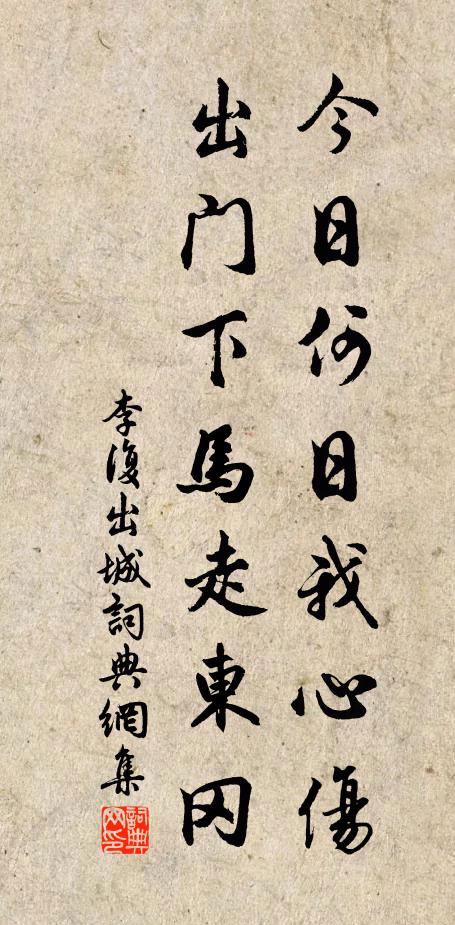 今日何日我心傷
出門下馬走東冈
李復出城詞典網集
詞典网印